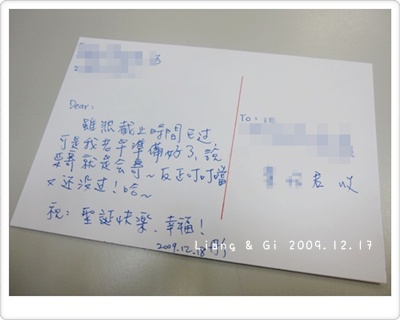 Dear:
雖然截止時間已过
可是我老早準備好了,說
要寄就是会寄~反正叮叮噹
又还没过!哈~
祝:聖誕快樂.幸福!
2009.12.18
To:
君 收
Liang & Gi 2009.12.17